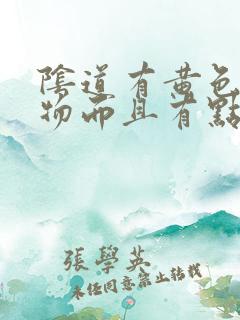 陰道有黃色
物而且有點
張學英
未經同意禁止轉載